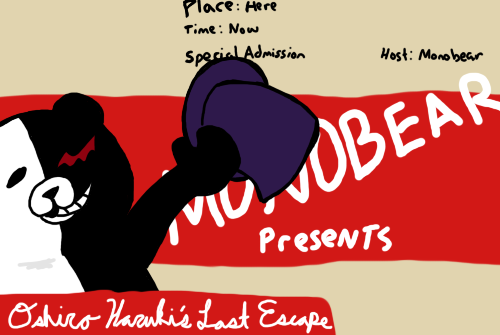 Place: Here
Time: Now
Special Admission
Host: Monobear
MONOBEAR
Presents
Oshiro Haruhi's Last Escape